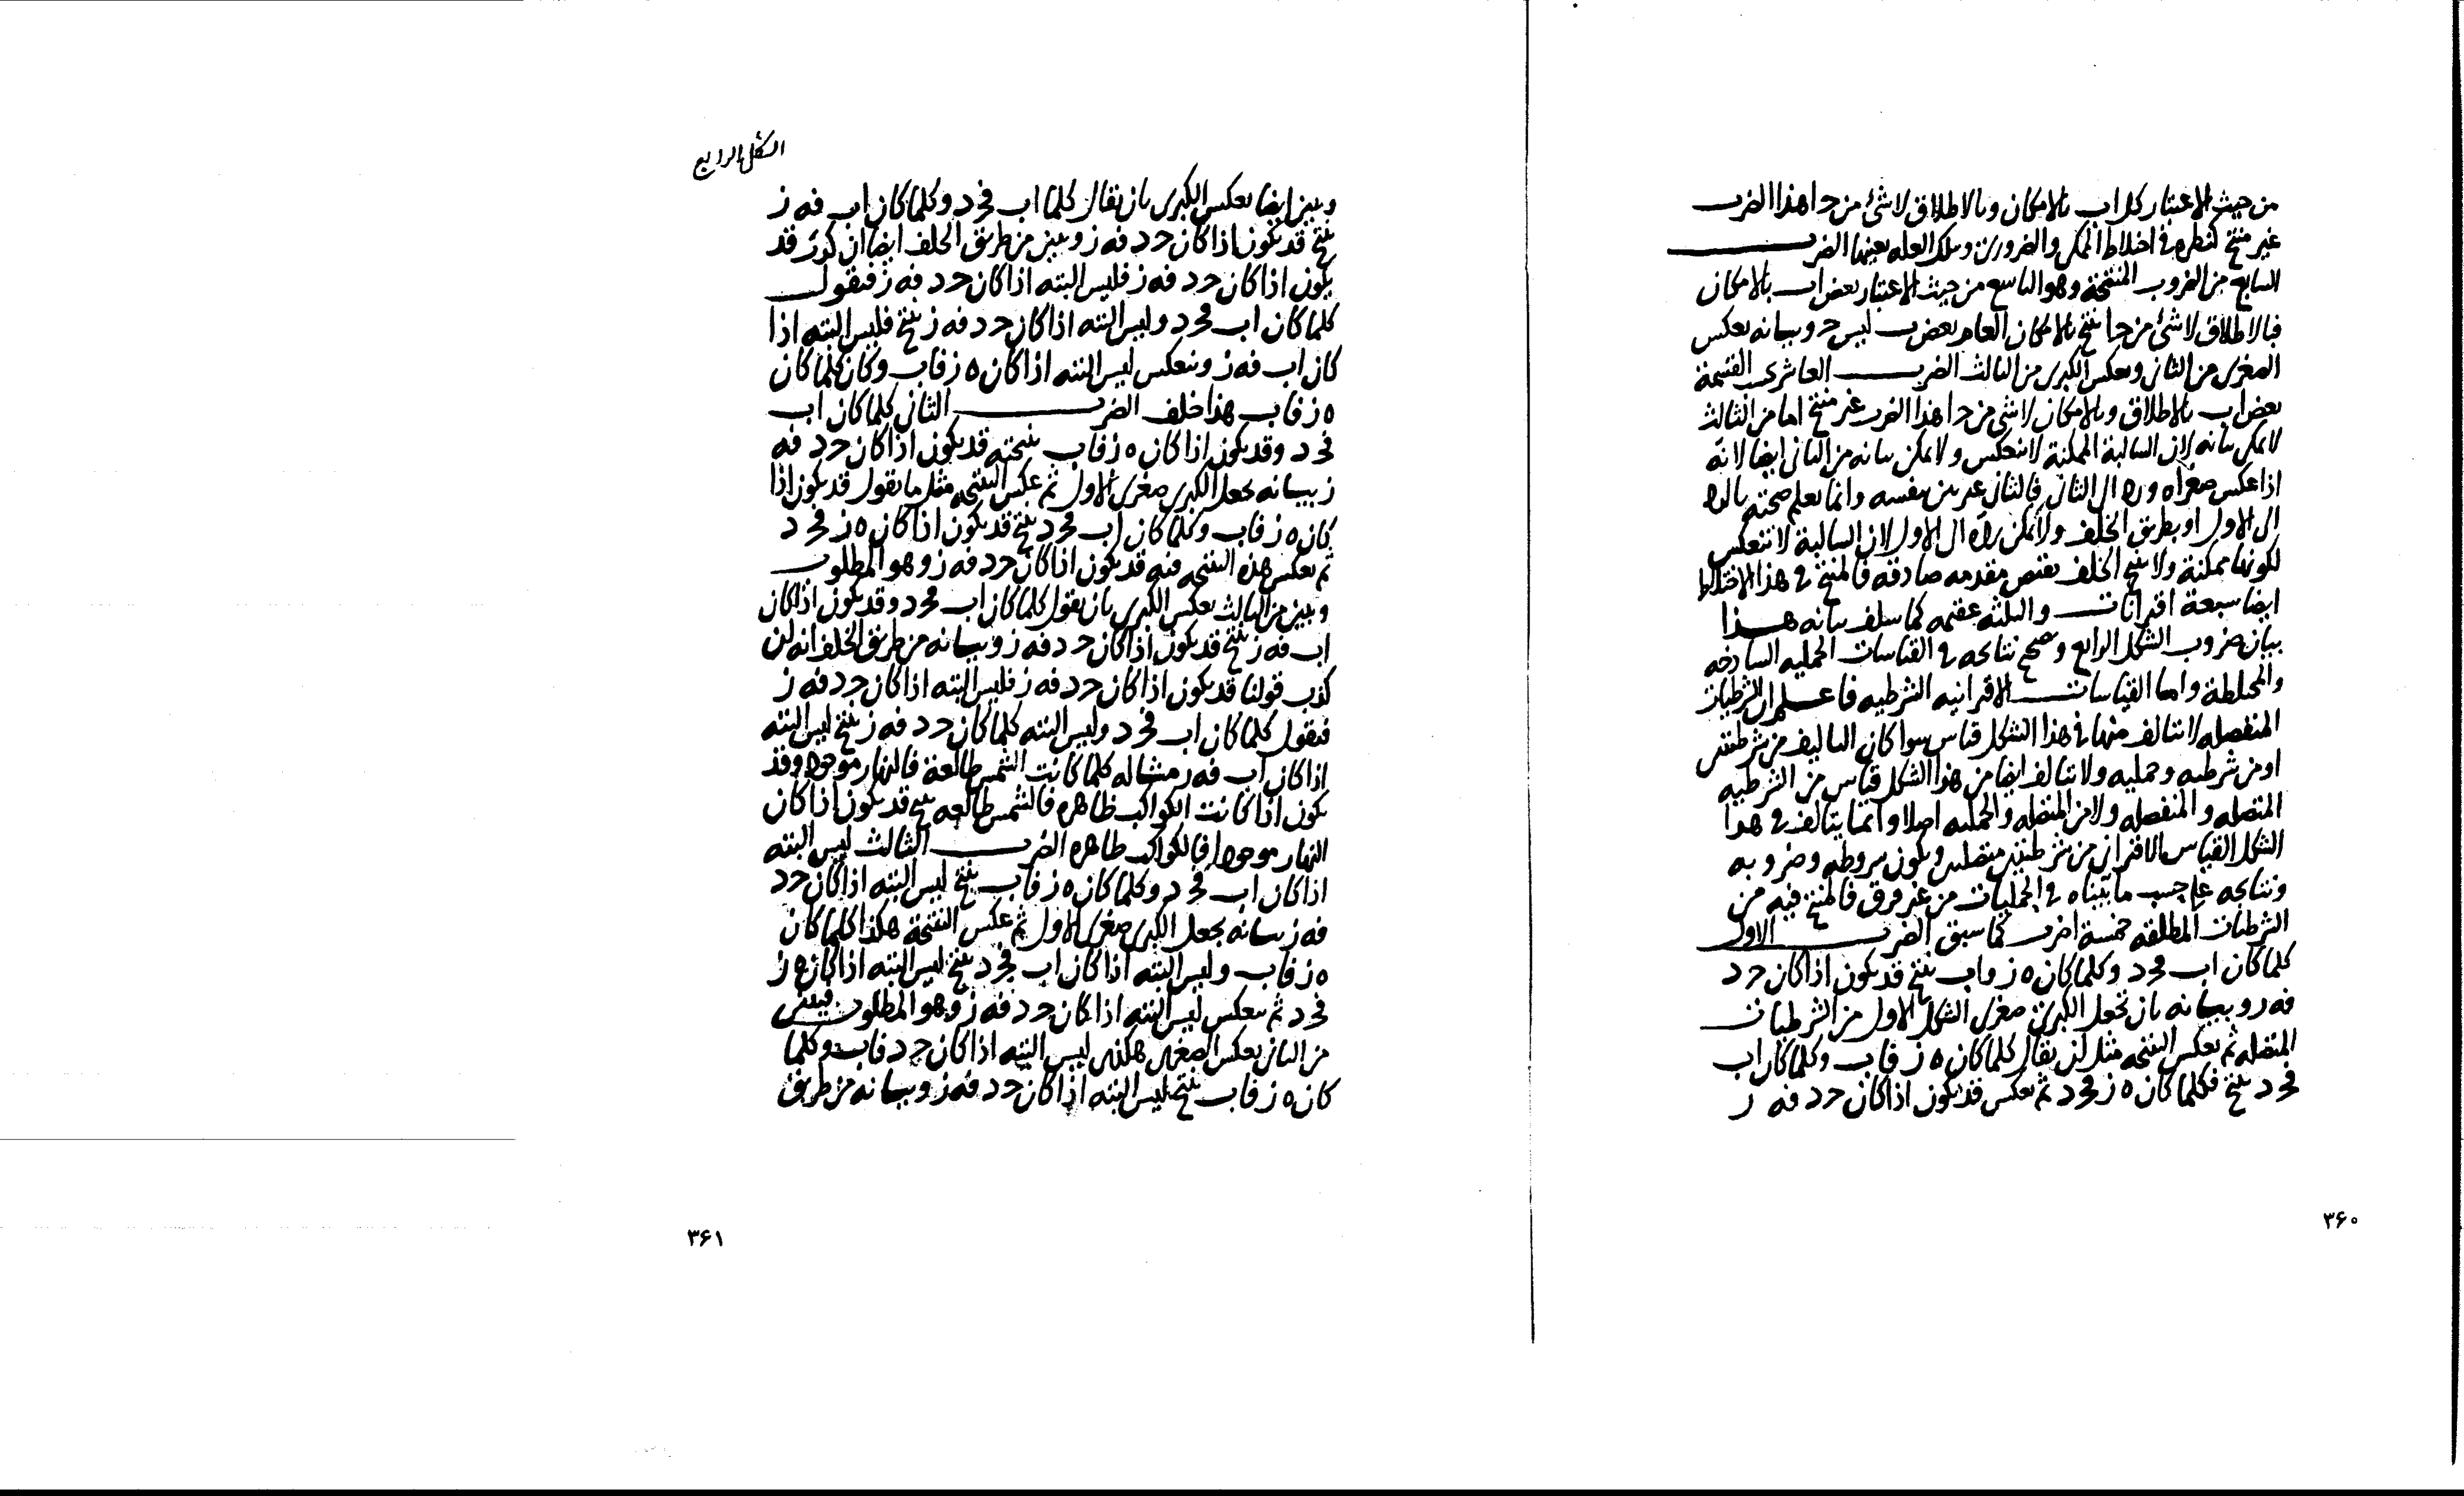 من حيث الاعتبار كل اب بالامكان وبالاطلاق لاشئ من حا هذا الضرب
غير منتج كنظيره في اختلاط الممكن والضروري وتلك العله بعينها الضرب
السابع من الضروب المنتجة وهو التاسع من حيث الاعتبار بعض اب بالامكان
فبالاطلاق لاشئ من حا ينتج بالامكان العام بعض ب ليس ح وبيانه بعكس
الصغرى من الثاني وبعكس الكبرى من الثالث الضرب العاشر بحسب القسمة
بعض اب بالاطلاق وبالامكان لاشئ من حا هذا الضرب غير منتج اما من الثالث
لا يمكن بيانه لان السالبة الممكنة لا تنعكس ولا يمكن بيانه من الثاني ايضا لانه
اذا عكس صغراه ورد الى الثاني فالثاني غير بين بنفسه وانما يعلم صحته بالرد
الى الاول او بطريق الخلف ولا يمكن رده الى الاول لان السالبة لا تنعكس
لكونها ممكنة ولا ينتج الخلف نقيض مقدمه صادقه فالمنتج في هذا الاختلاط
ايضا سبعة اقترانات والثلثة عقيمه كما سلف بيانه هذا
بيان ضروب الشكل الرابع وتصحيح نتائجه في القياسات الحمليه الساذجه
والمختلطة واما القياسات الاقترانيه الشرطيه فاعلم ان الشرطيات
المنفصله لا تتالف منها في هذا الشكل قياس سوا كان التاليف من شرطيتين
او من شرطيه وحمليه ولا تتالف ايضا من هذا الشكل قياس من الشرطيه
المتصله والمنفصله ولا من المتصله والحمليه اصلا وانما يتالف في هذا
الشكل القياس الاقتراني من شرطيتين متصلتين ويكون شروطه وضروبه
ونتائجه على حسب ما بيناه في الحمليات من غير فرق فالمنتج فيه من
الشرطيات المطلقه خمسة اضرب كما سبق الضرب الاول
كلما كان اب فحد وكلما كان ه ز واب ينتج قد يكون اذا كان حد
فه ر وبيانه بان تجعل الكبرى صغرى الشكل الاول من الشرطيات
المتصله ثم بعكس النتيجه مثل ان يقال كلما كان ه ز فاب وكلما كان اب
فحد ينتج فكلما كان ه ز فحد ثم بعكس قد يكون اذا كان حد فه ر
٣۶٠
الشكل الرابع
وبين ايضا بعكس الكبرى بان يقال كلما اب فحد وكلما كان اب فه ز
ينتج قد يكون اذا كان حد فه ز وبين من طريق الخلف ايضا ان كذب قد
يكون اذا كان حد فه ز فليس البته اذا كان حد فه ز فنقول
كلما كان اب فحد وليس البته اذا كان حد فه ز ينتج فليس البته اذا
كان اب فه ز وينعكس ليس البته اذا كان ه ز فاب وكان كلما كان
ه ز فاب هذا خلف الضرب الثاني كلما كان اب
فحد وقد يكون اذا كان ه ز فاب نتيجته قد يكون اذا كان حد فه
ز بيانه بجعل الكبرى صغرى الاول ثم عكس النتيجه مثل ما تقول قد يكون اذا
كان ه ز فاب وكلما كان اب فحد ينتج قد يكون اذا كان ه ز فحد
ثم بعكس هذه النتيجه فنه قد يكون اذا كان حد فه ز وهو المطلوب
وبين من الثالث بعكس الكبرى بان نقول كلما كان اب فحد وقد يكون اذا كان
اب فه ز ينتج قد يكون اذا كان حد فه ز وبيانه من طريق الخلف انه لن
كذب قولنا قد يكون اذا كان حد فه ز فليس البته اذا كان حد فه ز
فنقول كلما كان اب فحد وليس البته كلما كان حد فه ز ينتج ليس البته
اذا كان اب فه ز مثاله كلما كانت الشمس طالعة فالنهار موجود وقد
يكون اذا كانت الكواكب ظاهره فالشمس طالعه ينتج قد يكون اذا كان
النهار موجودا فالكواكب ظاهره الضرب الثالث ليس البته
اذا كان اب فحد وكلما كان ه ز فاب ينتج ليس البته اذا كان حد
فه ز بيانه بجعل الكبرى صغرى الاول ثم عكس النتيجة هكذا كلما كان
ه ز فاب وليس البته اذا كان اب فحد ينتج ليس البته اذا كان ه ز
فحد ثم بعكس ليس البته اذا كان حد فه ز وهو المطلوب فبين
من الثاني بعكس الصغرى هكذى ليس البته اذا كان حد فاب وكلما
كان ه ز فاب ينتج ليس البته اذا كان حد فه ز وبيانه من طريق
٣۶١